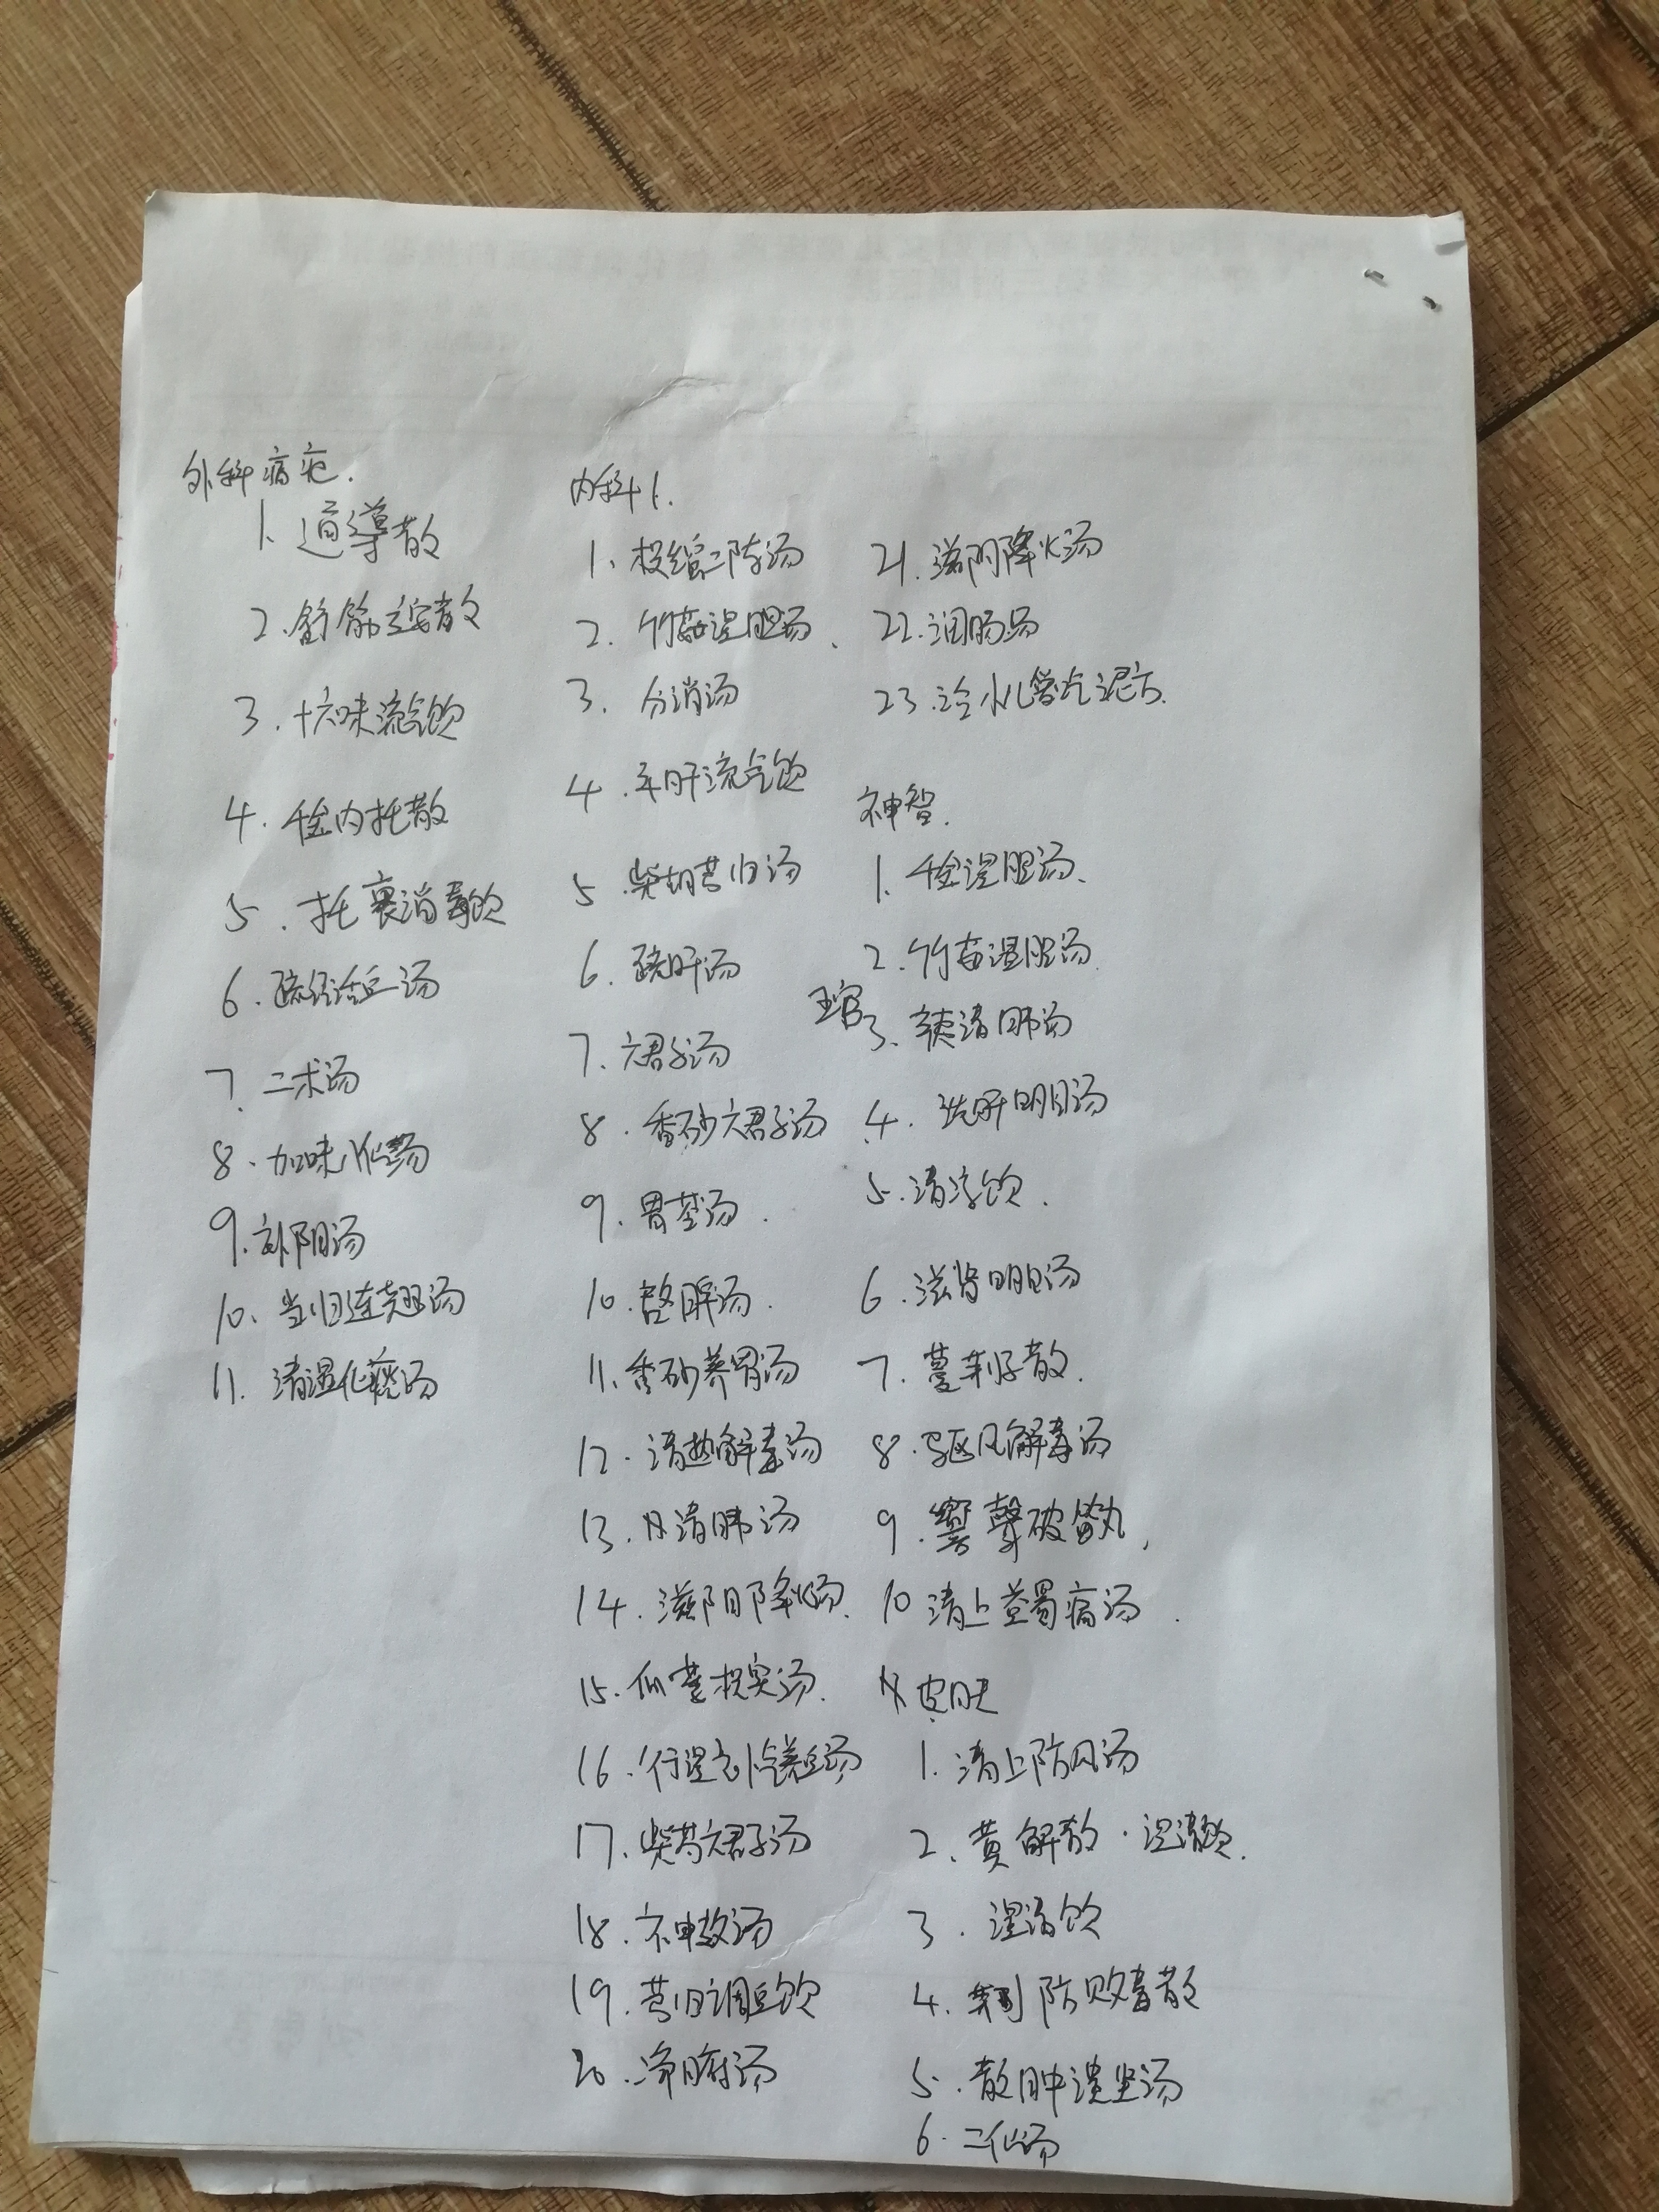 外科病疮.
1. 通導散
2. 舒筋立安散
3. 十六味流气饮
4. 千金内托散
5. 托裏消毒饮
6. 疏经活血汤
7. 二术汤
8. 加味八仙汤
9. 补阴汤
10. 当归连翘汤
11. 清湿化痰汤
内科1.
1. 枳缩二陈汤
2. 竹茹温胆汤
3. 分消汤
4. 平肝流气饮
5. 柴胡芎归汤
6. 疏肝汤
7. 六君子汤
8. 香砂六君子汤
9. 胃苓汤.
10. 啓脾汤.
11. 香砂养胃汤
12. 清热解毒汤
13. 清肺汤
14. 滋阴降火汤
15. 瓜蒌枳实汤.
16. 行湿补气养血汤
17. 柴芍六君子汤
18. 神效汤
19. 芎归调血饮
20. 净府汤
21. 滋阴降火汤
22. 润肠汤
23. 治小儿
神智.
1. 千金温胆汤、
2. 竹茹温胆汤.
五官 3. 辛夷清肺汤
4. 洗肝明目汤
5. 清凉饮.
6. 滋肾明目汤
7. 蔓荆子散.
8. 驱风解毒汤
9. 響聲破笛丸,
10 清上蠲痛汤.
皮肤
1. 清上防风汤
2. 黄解散·温清饮.
3. 温清饮
4. 荆防败毒散
5. 散肿溃坚汤
6. 二仙汤